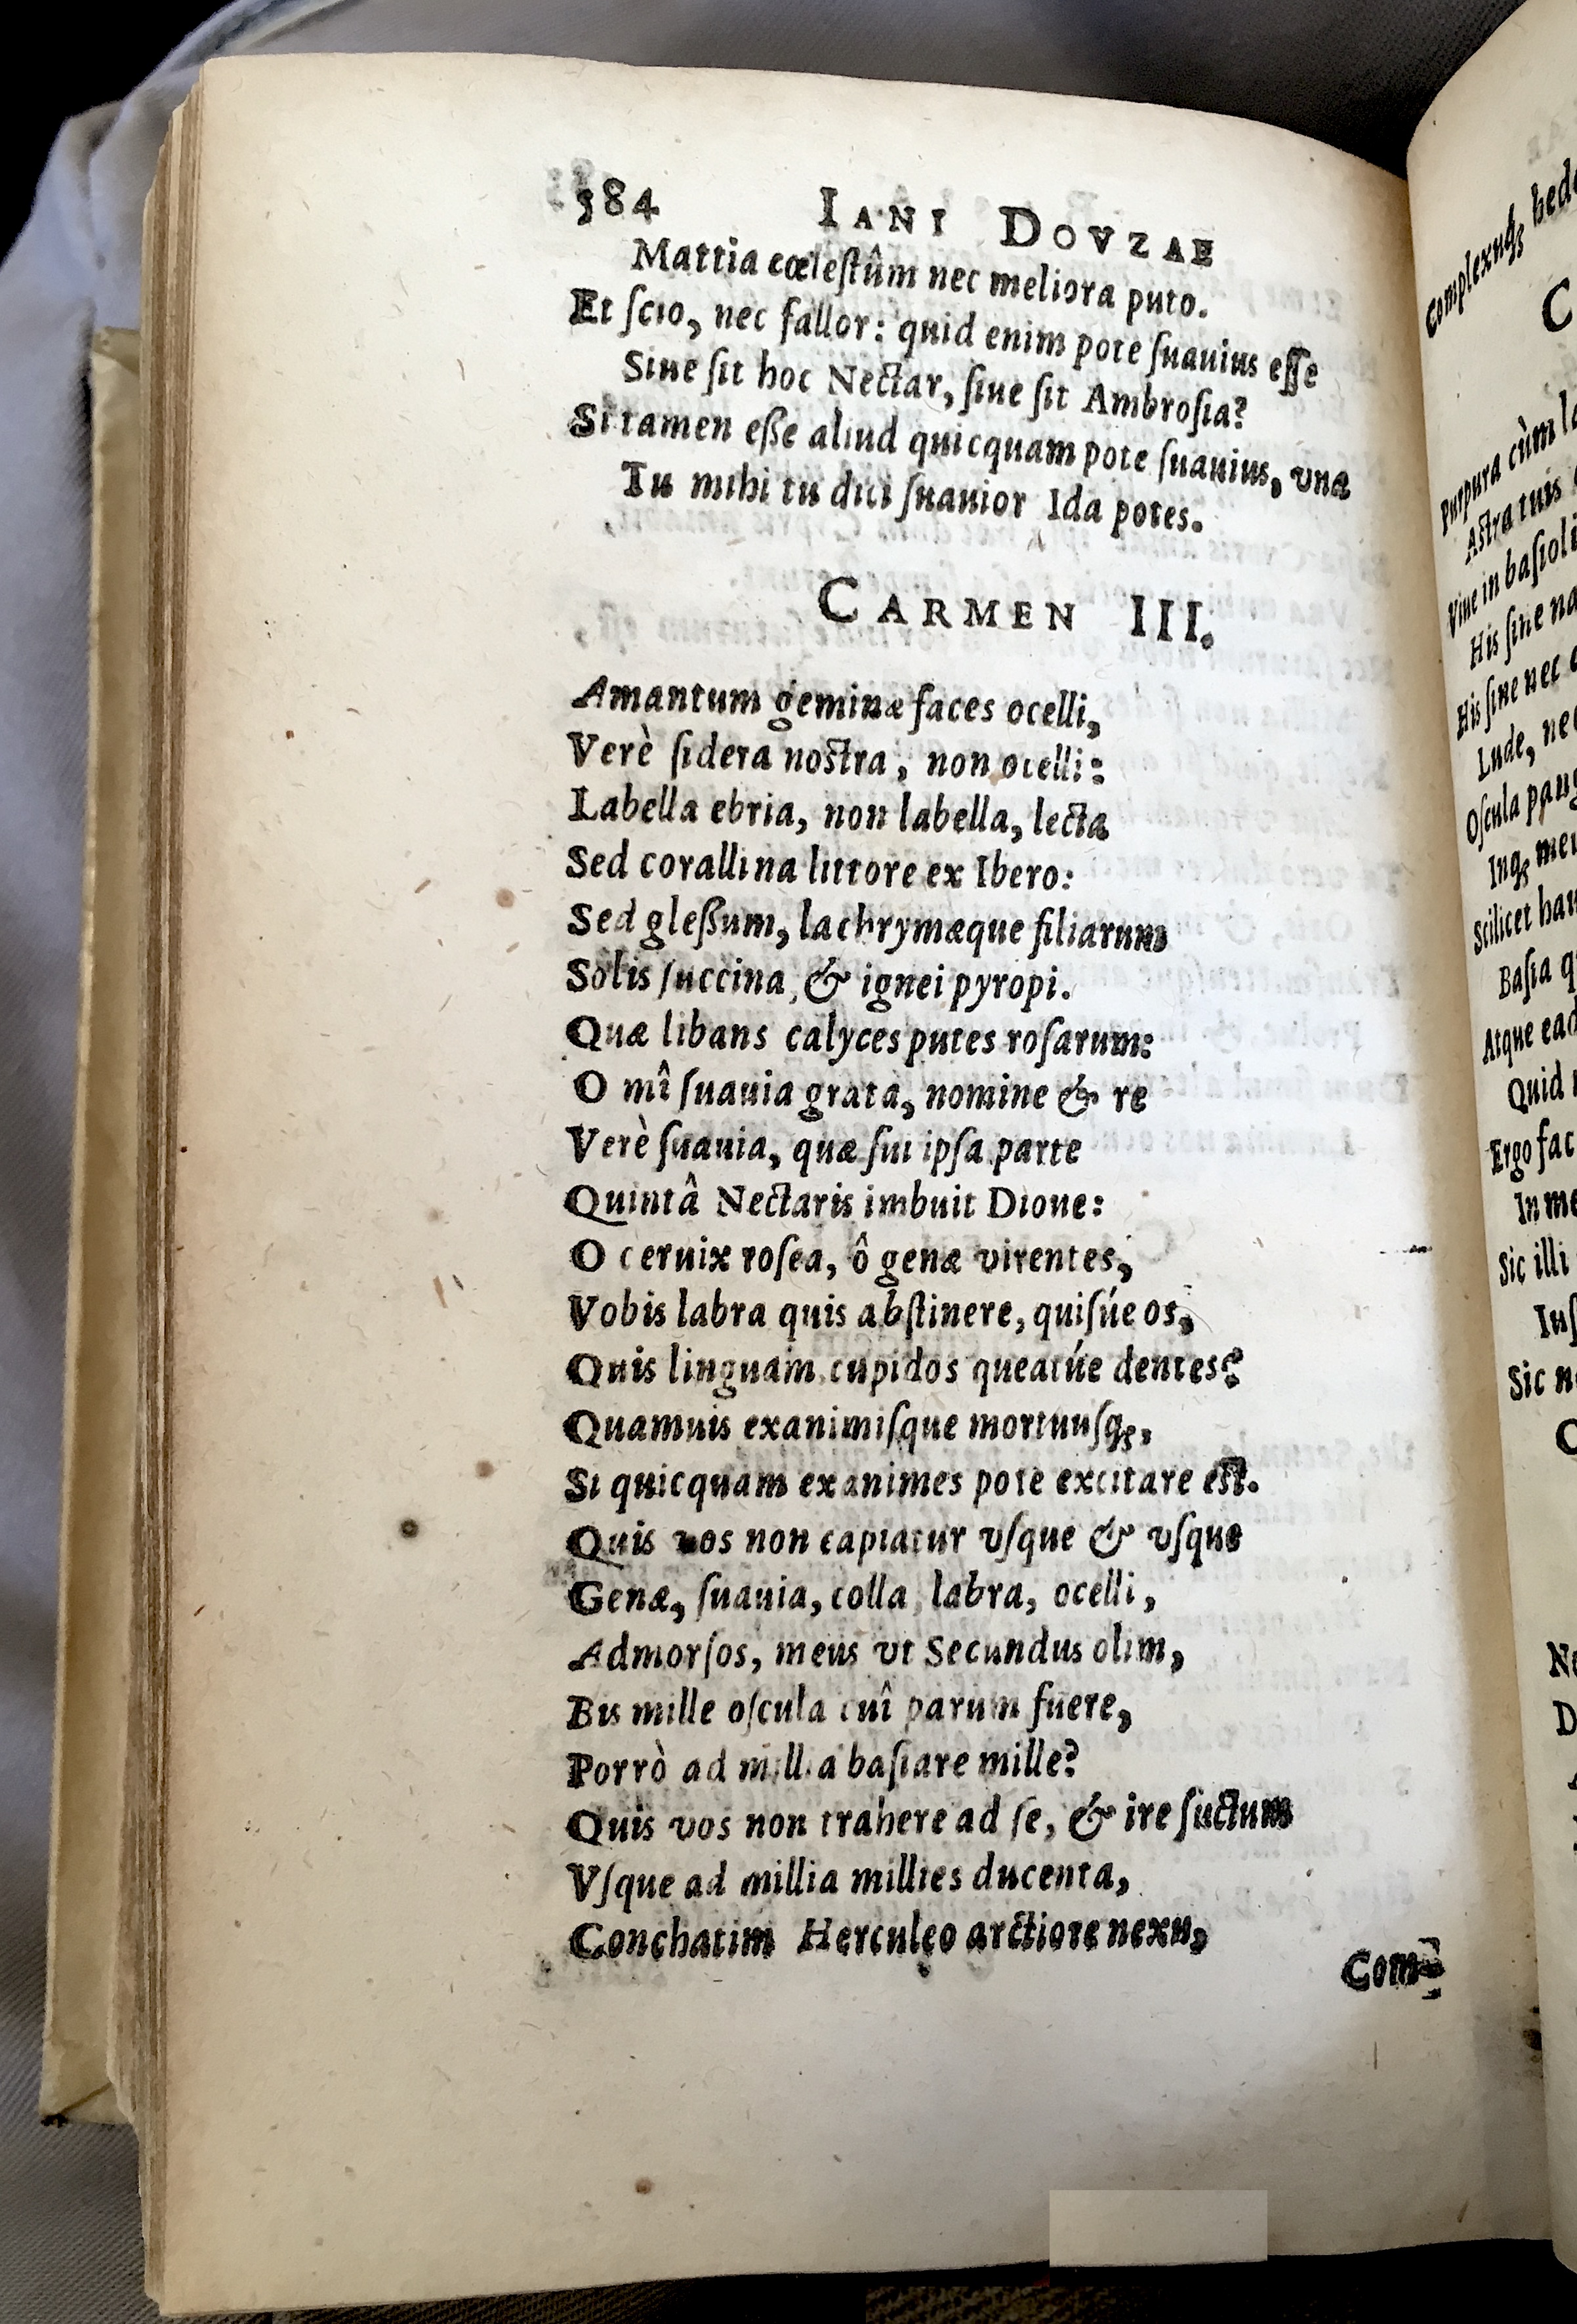 584 IANI DOVZAE
Mattia cœlestûm nec meliora puto.
Et ſcio, nec fallor: quid enim pote ſuauius eſſe
Siue ſit hoc Nectar, ſiue ſit Ambroſia?
Si tamen eſſe aliud quicquam pote ſuauius, vna
Tu mihi tu dici ſuauior Ida potes.
CARMEN III.
Amantum geminæ faces ocelli,
Verè ſidera nostra, non ocelli:
Labella ebria, non labella, lecta
Sed corallina littore ex Ibero:
Sed gleßum, lachrymæque filiarum
Solis ſuccina, & ignei pyropi.
Quæ libans calyces putes roſarum:
O mî ſuauia grata, nomine & re
Verè ſuauia, quæ ſui ipſa parte
Quintâ Nectaris imbuit Dione:
O ceruix roſea, ô genæ virentes,
Vobis labra quis abſtinere, quiſúe os,
Quis linguam cupidos queatúe dentes?
Quamuis exanimiſque mortuuſq;,
Si quicquam exanimes pote excitare est.
Quis vos non capiatur vſque & vſque
Genæ, ſuauia, colla, labra, ocelli,
Admorſos, meus vt Secundus olim,
Bis mille oſcula cuî parum fuere,
Porrò ad millia baſiare mille?
Quis vos non trahere ad ſe, & ire ſuctum
Vſque ad millia millies ducenta,
Conchatim Herculeo arctiore nexu,
Com-
Complexuq; hede
C
Purpura cùm
Astra tuis
Viue in baſioli
His ſine
His ſine nec
Lude, nec
Oſcula
Inq;
Scilicet
Baſia
Atque
Quid
Ergo
In
Sic illi
Sic
C